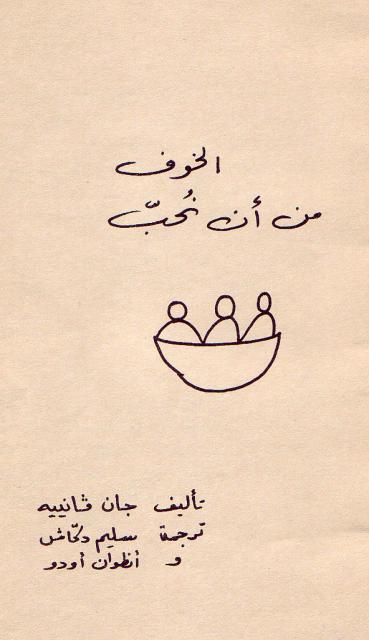 الخوف
من أن نُحبّ
تأليف جان ڤانييه
ترجمة سليم دكّاش
و أنطوان أودو